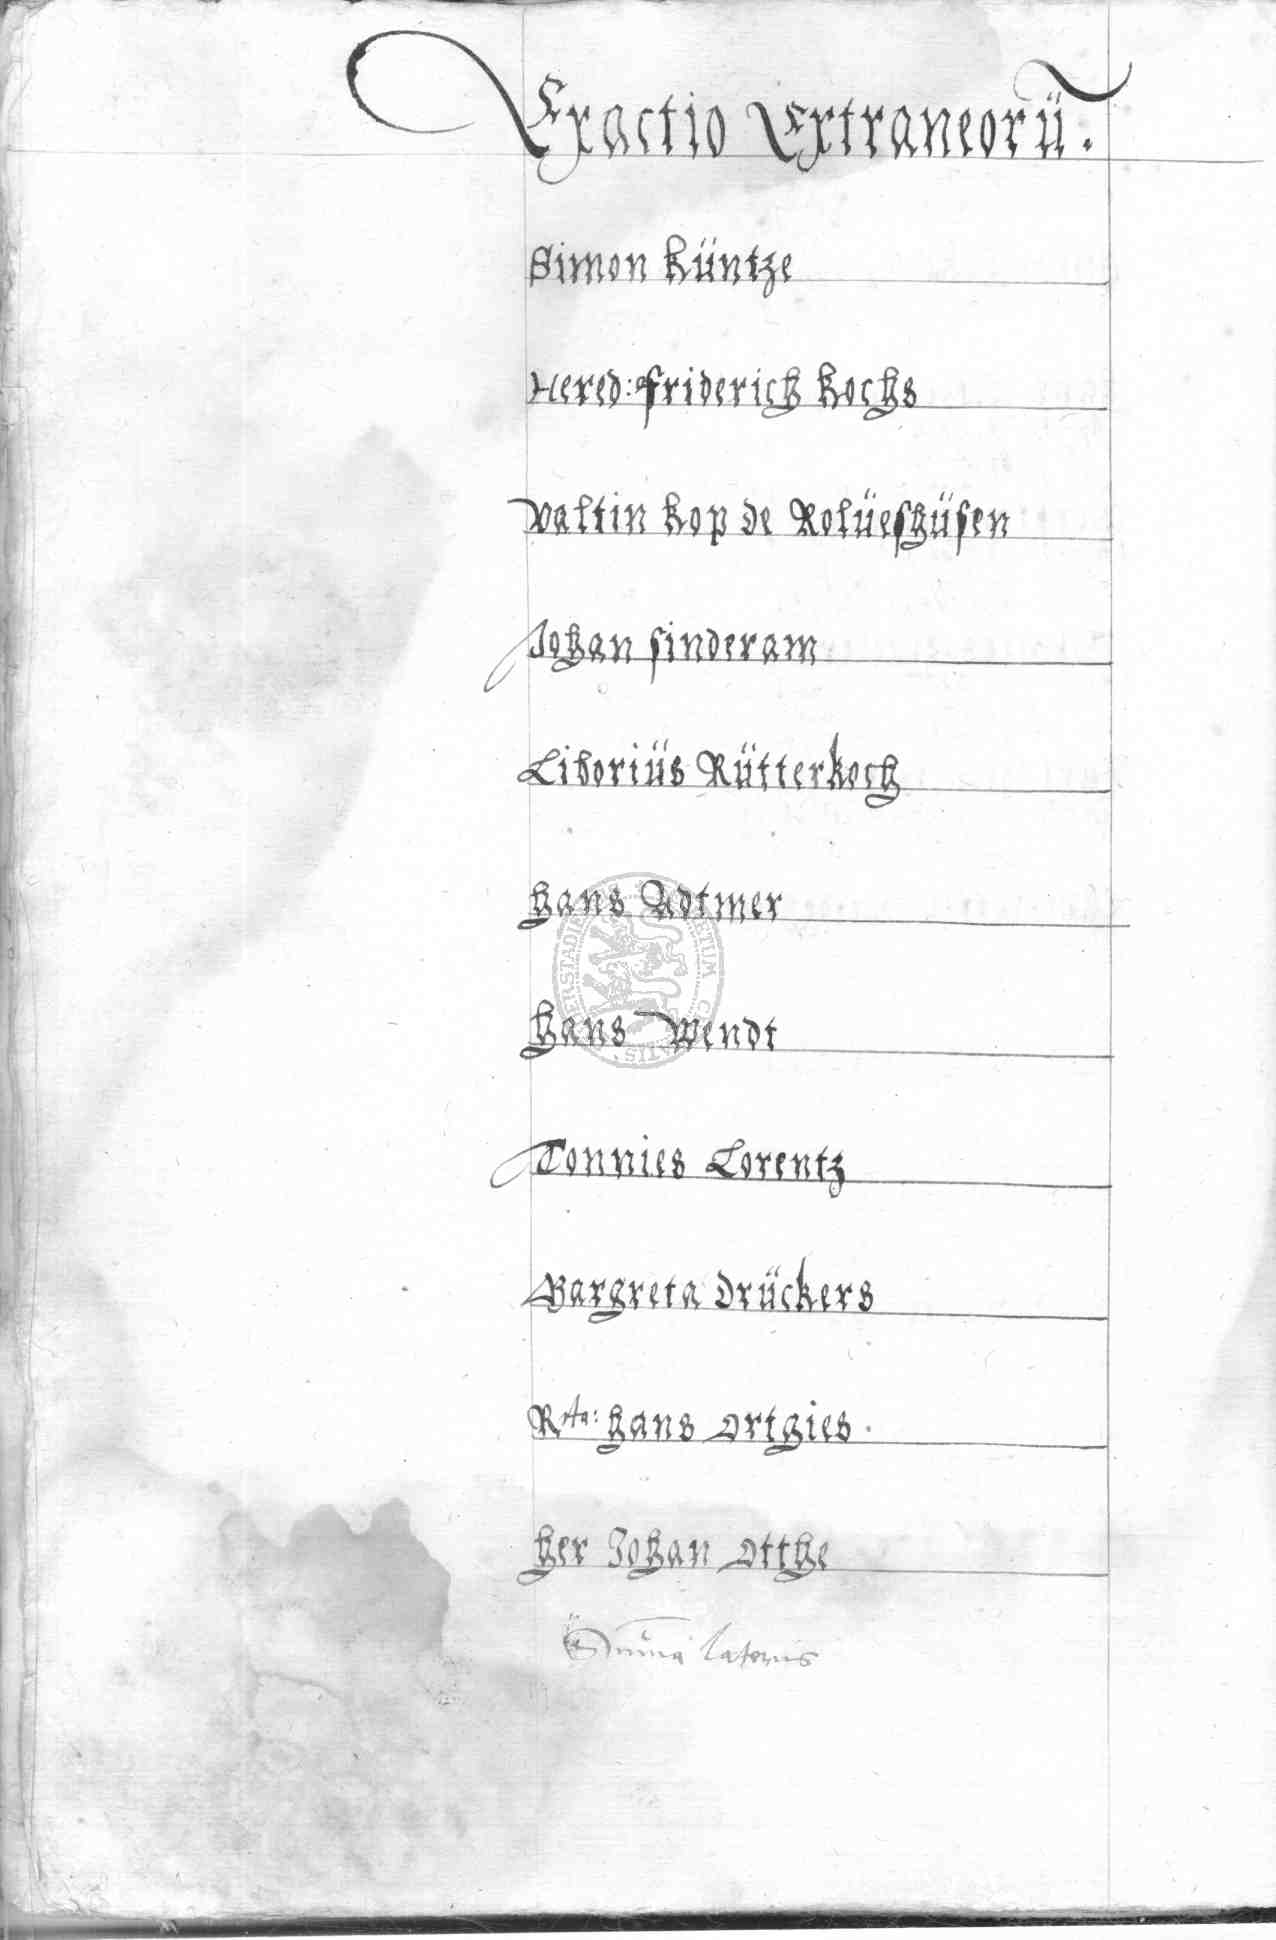 Exactio Extraneorũ.
Simon Küntze
Hered: Friderich Kochs
Valtin Kop de Rolüeshüsen
Johan Sinderam
Liborius Rütterkoch
Hans Adtmer
Hans Wendt
Tonnies Lorentz
Margreta Drückers
Rcta: Hans Ortgies.
Her Johan Otthe
Suma lateris